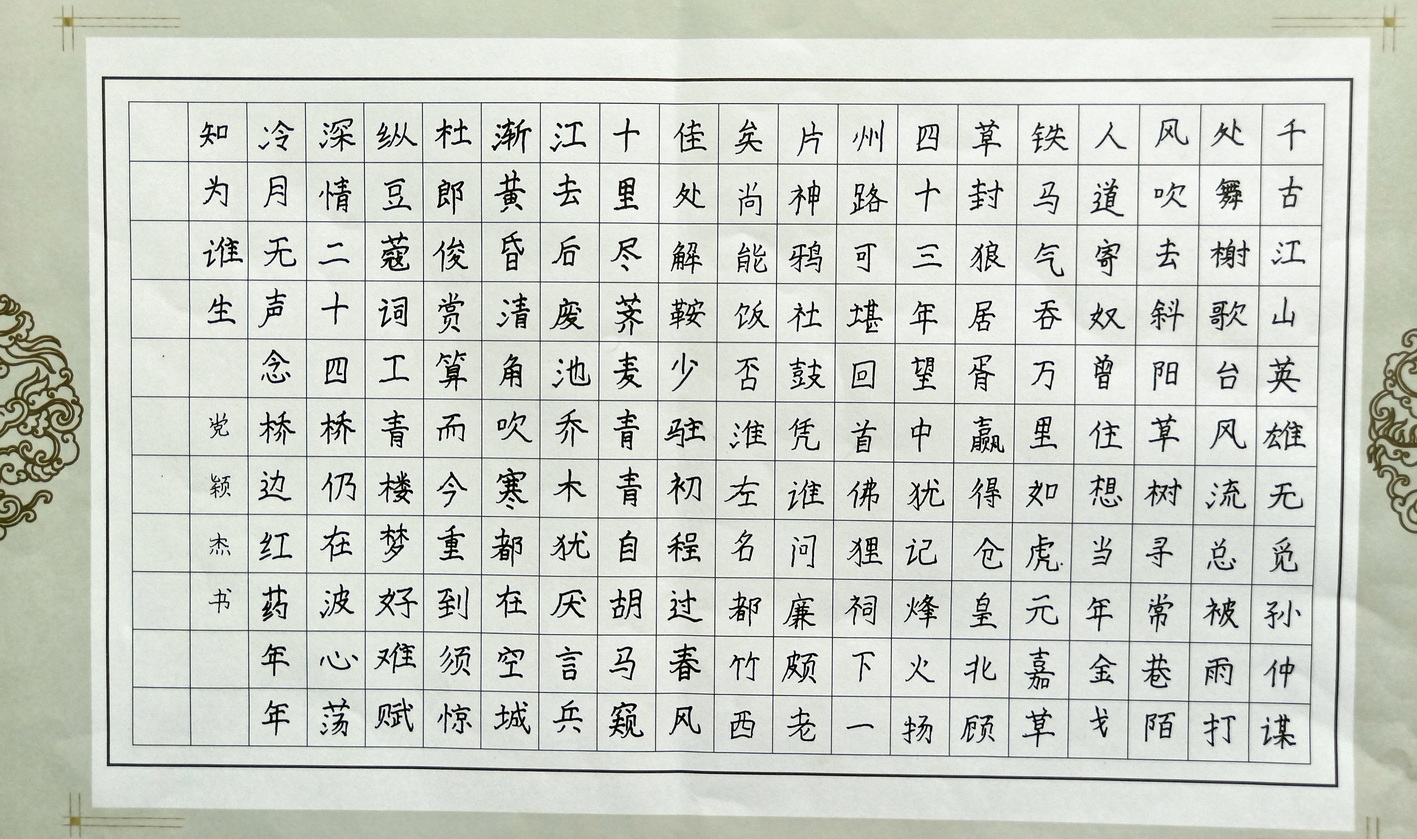 千古江山英雄无觅孙仲谋
处舞榭歌台风流总被雨打
风吹去斜阳草树寻常巷陌
人道寄奴曾住想当年金戈
铁马气吞万里如虎元嘉草
草封狼居胥赢得仓皇北顾
四十三年望中犹记烽火扬
州路可堪回首佛狸祠下一
片神鸦社鼓凭谁问廉颇老
矣尚能饭否淮左名都竹西
佳处解鞍少驻初程过春风
十里尽荠麦青青自胡马窥
江去后废池乔木犹厌言兵
渐黄昏清角吹寒都在空城
杜郎俊赏算而今重到须惊
纵豆蔻词工青楼梦好难赋
深情二十四桥仍在波心荡
冷月无声念桥边红药年年
知为谁生 党颖杰书